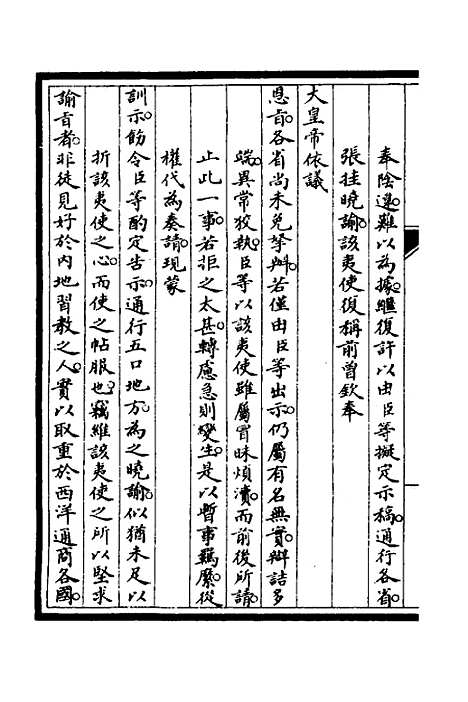 奉陰違。難以為據。繼復許以由臣等擬定示稿。通行各省。
張挂曉諭。該夷使復稱前曾欽奉
大皇帝依議
恩旨。各省尚未免拏辦。若僅由臣等出示。仍屬有名無實。辯詰多
端。異常狡執。臣等以該夷使雖屬冒昧煩瀆。而前後所請。
止此一事。若拒之太甚。轉慮急則變生。是以暫事羈縻。從
權代為奏請。現蒙
訓示。飭令臣等酌定告示。通行五口地方。為之曉諭。似猶未足以
折該夷使之心。而使之帖服也。竊維該夷使之所以堅求
諭旨者。非徒見好於內地習教之人。實以取重於西洋通商各國。